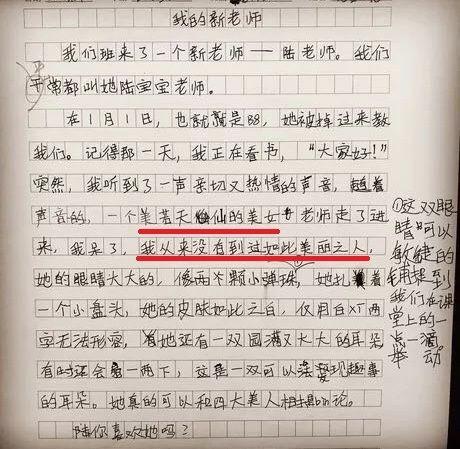 我的新老师
我们班来了一个新老师——陆老师。我们
平常都叫她陆宝宝老师。
在1月1日，也就是88，她被掉过来教
我们。记得那一天，我正在看书，“大家好！”
突然，我听到了一声亲切又热情的声音，趁着
声音的，一个美若天仙的美女老师走了进
来，我呆了，我从来没有到过如此美丽之人，
她的眼睛大大的，像两个颗小弹珠，她扎着
一个小盘头，她的皮肤如此之白，仅用白灯两
字无法形容，有她还有一双圆满又大大的耳朵
有时还会一两下，这是一双可以发现趣事
的耳朵。她真的可以和四大美人相提论。
陆你喜欢她吗？
①这双眼
睛可以
敏捷的
捕捉到
我们在课
堂上的一
点一滴。
举动